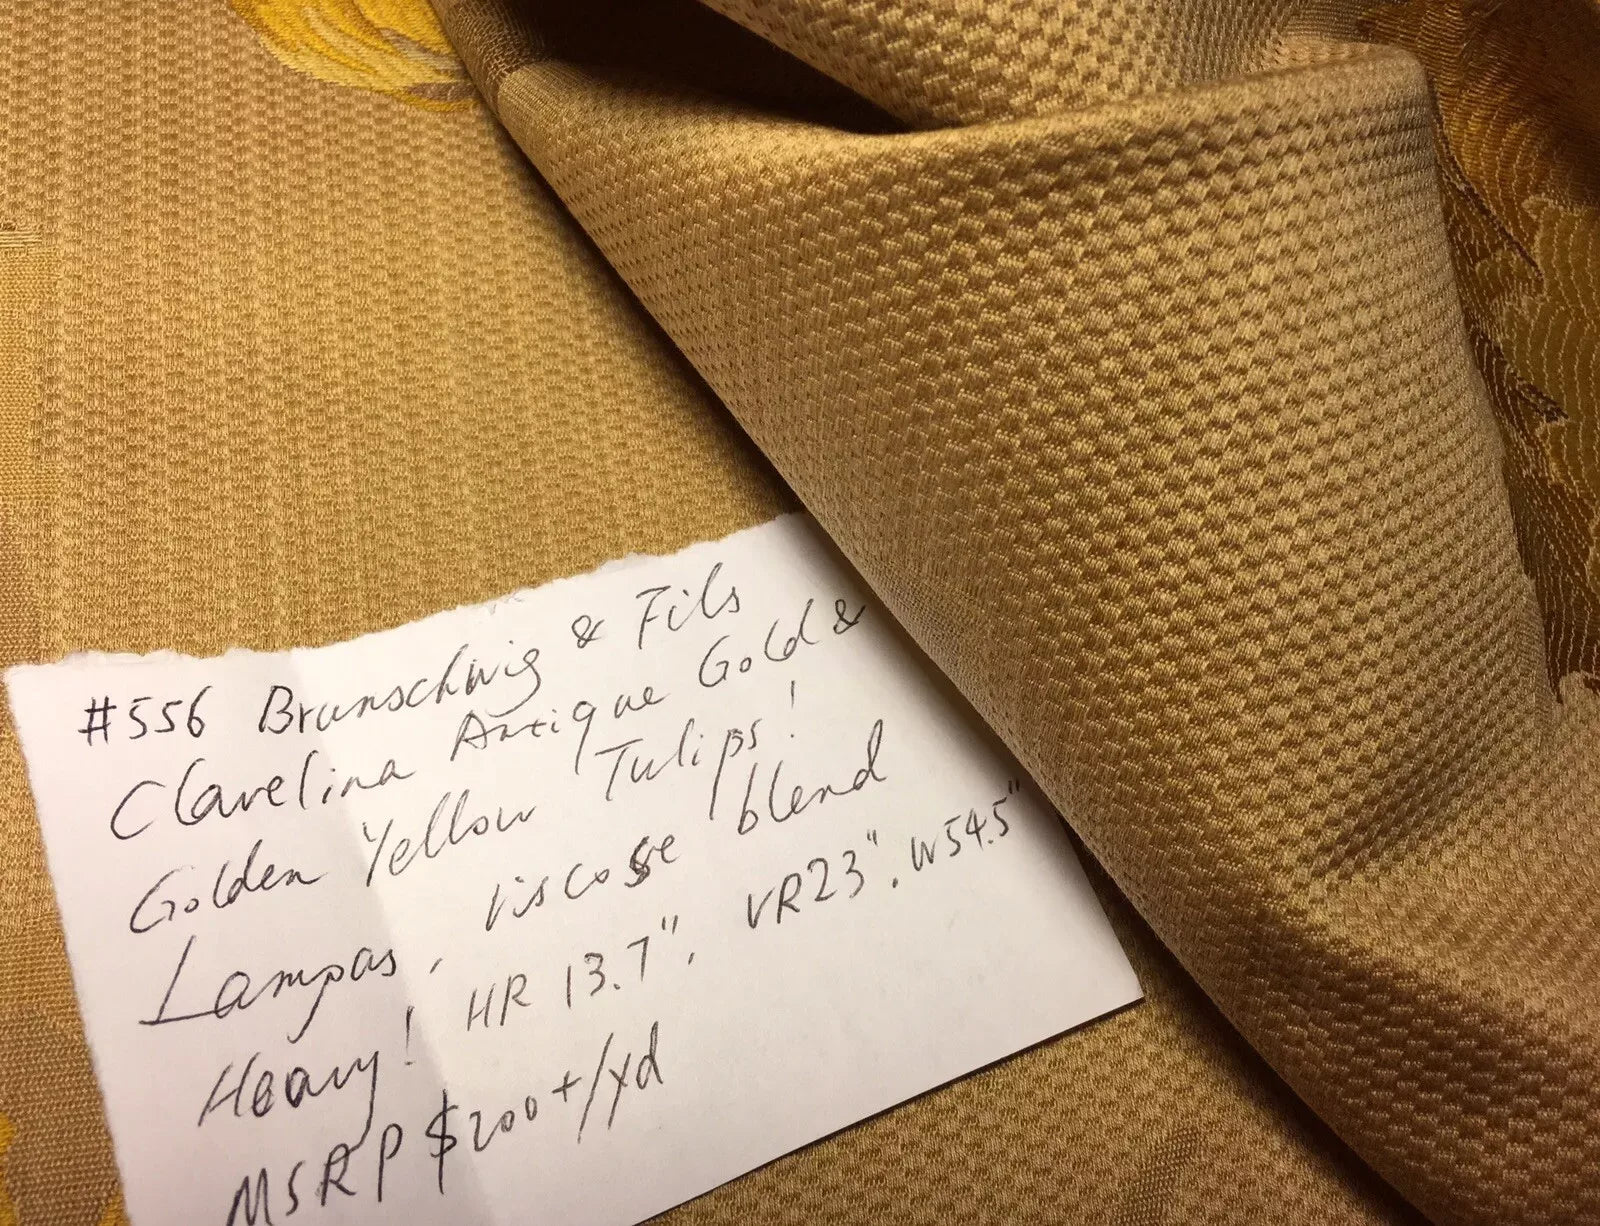 #556 Brunschwig & Fils
Clavelina Antique Gold &
Golden Yellow Tulips!
Lampas, viscose blend
Heavy! HR 13.7", VR23", W54.5"
MSRP $200+/yd